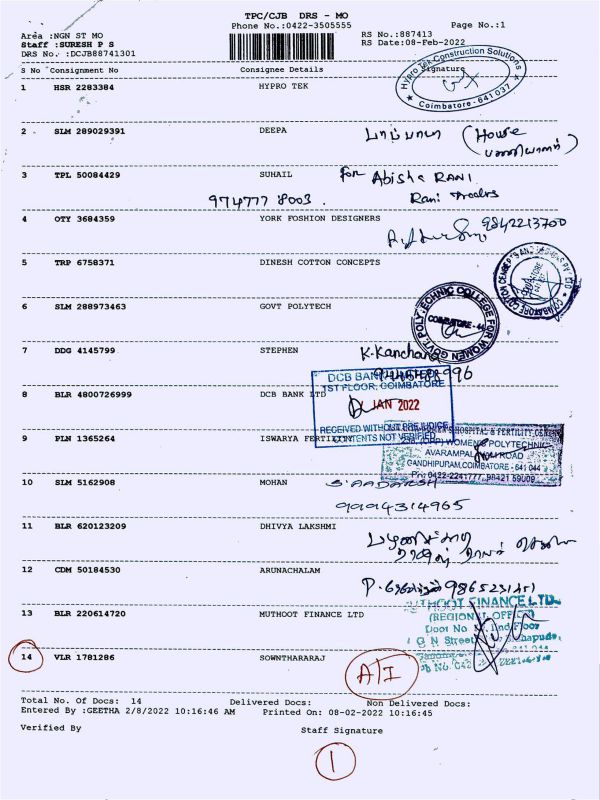 TPC/CJB DRS - MO
Phone No.:0422-3505555
Page No.:1
Area :NGN ST MO
RS No.:887413
Staff :SURESH P S
RS Date:08-Feb-2022
DRS No. :DCJB88741301
S No Consignment No Consignee Details Signature
Hypro Tek Construction Solutions
Coimbatore - 641 037
1 HSR 2283384 HYPRO TEK
2 SLM 289029391 DEEPA
(House
3 TPL 50084429 SUHAIL
for Abisha RANI
974777 8003 . Rani
4 OTY 3684359 YORK FOSHION DESIGNERS
9842213700
5 TRP 6758371 DINESH COTTON CONCEPTS
6 SLM 288973463 GOVT POLYTECH
COIMBATORE - 44
7 DDG 4145799 STEPHEN
K. Kanchana
DCB BANK
1ST FLOOR, COIMBATORE
8 BLR 4800726999 DCB BANK LTD
JAN 2022
RECEIVED WITHOUT PREJUDICE
CONTENTS NOT VERIFIED
9 PLN 1365264 ISWARYA FERTILITY
HOSPITAL & FERTILITY CENTRE
WOMEN'S POLYTECHNIC
AVARAMPALAYAM ROAD
GANDHIPURAM, COIMBATORE - 641 044
Ph: 0422-2241777, 98421 59009
10 SLM 5162908 MOHAN
11 BLR 620123209 DHIVYA LAKSHMI
12 CDM 50184530 ARUNACHALAM
13 BLR 220614720 MUTHOOT FINANCE LTD
MUTHOOT FINANCE LTD.
(REGIONAL OFFICE)
Door No
G N Street
14 VLR 1781286 SOWNTHARARAJ
A/I
Total No. Of Docs: 14 Delivered Docs: Non Delivered Docs:
Entered By :GEETHA 2/8/2022 10:16:46 AM Printed On: 08-02-2022 10:16:45
Verified By Staff Signature
1